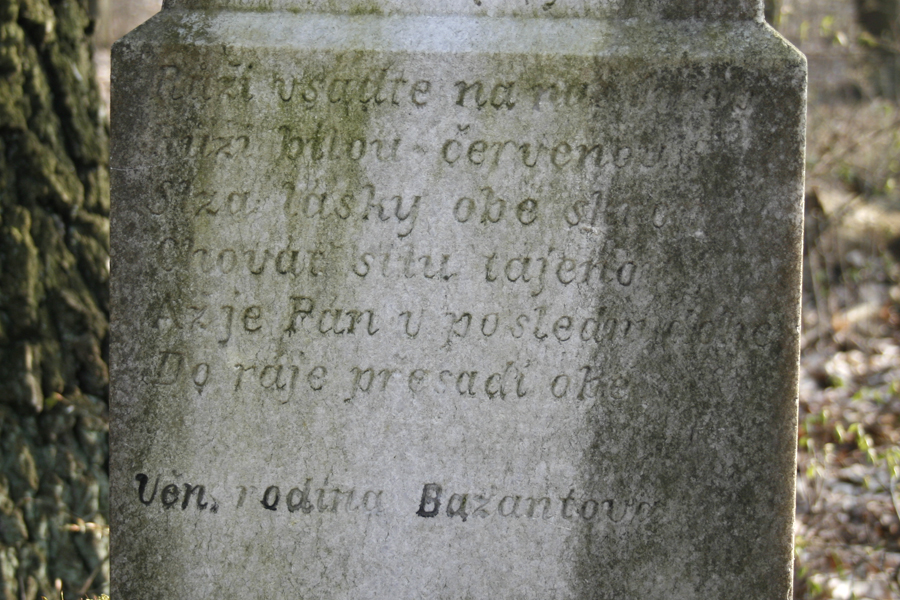 Růži vsaďte na
růži bílou červenou
Slza lásky obe
Chovat sílu tajeno
Až je Pán v poslední době
Do ráje přesadí obe
Věn. rodina Bažantova